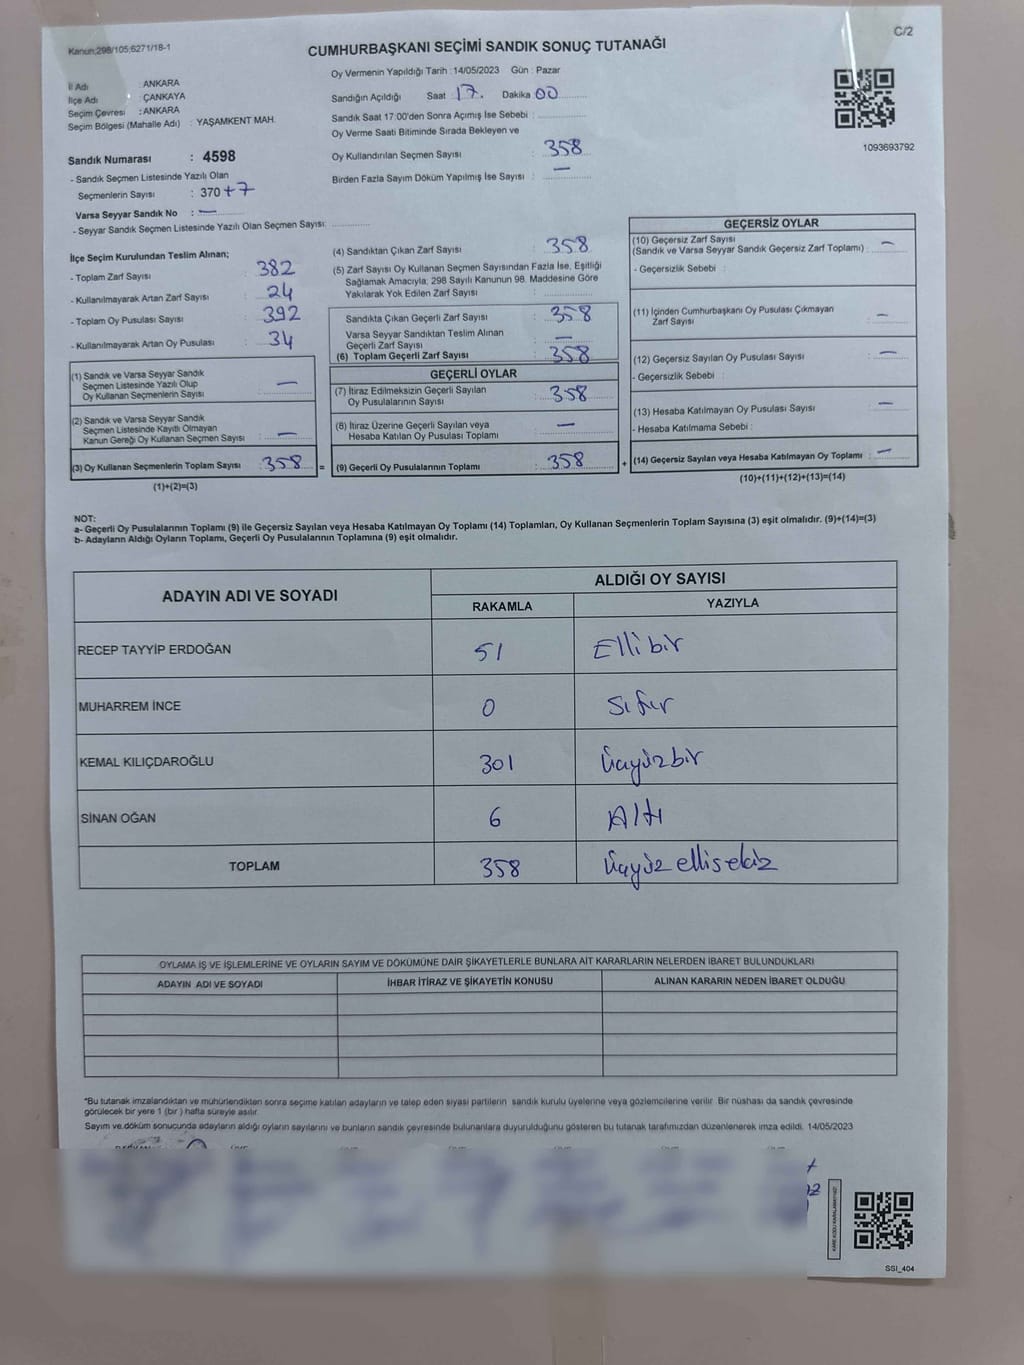 Kanun;298/105;6271/18-1
C/2
CUMHURBAŞKANI SEÇİMİ SANDIK SONUÇ TUTANAĞI
İl Adı : ANKARA
İlçe Adı : ÇANKAYA
Seçim Çevresi : ANKARA
Seçim Bölgesi (Mahalle Adı) : YAŞAMKENT MAH.
Oy Vermenin Yapıldığı Tarih : 14/05/2023 Gün : Pazar
Sandığın Açıldığı Saat 17. Dakika 00
Sandık Saat 17:00'den Sonra Açılmış İse Sebebi :
Oy Verme Saati Bitiminde Sırada Bekleyen ve
Oy Kullandırılan Seçmen Sayısı : 358
Birden Fazla Sayım Döküm Yapılmış İse Sayısı : —
1093693792
Sandık Numarası : 4598
- Sandık Seçmen Listesinde Yazılı Olan
Seçmenlerin Sayısı : 370 +7
Varsa Seyyar Sandık No : —
- Seyyar Sandık Seçmen Listesinde Yazılı Olan Seçmen Sayısı:
İlçe Seçim Kurulundan Teslim Alınan;
- Toplam Zarf Sayısı : 382
- Kullanılmayarak Artan Zarf Sayısı : 24
- Toplam Oy Pusulası Sayısı : 392
- Kullanılmayarak Artan Oy Pusulası : 34
(1) Sandık ve Varsa Seyyar Sandık
Seçmen Listesinde Yazılı Olup
Oy Kullanan Seçmenlerin Sayısı : —
(2) Sandık ve Varsa Seyyar Sandık
Seçmen Listesinde Kayıtlı Olmayan
Kanun Gereği Oy Kullanan Seçmen Sayısı : —
(3) Oy Kullanan Seçmenlerin Toplam Sayısı : 358 =
(1)+(2)=(3)
(4) Sandıktan Çıkan Zarf Sayısı : 358
(5) Zarf Sayısı Oy Kullanan Seçmen Sayısından Fazla İse, Eşitliği
Sağlamak Amacıyla; 298 Sayılı Kanunun 98. Maddesine Göre
Yakılarak Yok Edilen Zarf Sayısı :
Sandıkta Çıkan Geçerli Zarf Sayısı : 358
Varsa Seyyar Sandıktan Teslim Alınan
Geçerli Zarf Sayısı : —
(6) Toplam Geçerli Zarf Sayısı : 358
GEÇERLİ OYLAR
(7) İtiraz Edilmeksizin Geçerli Sayılan
Oy Pusulalarının Sayısı : 358
(8) İtiraz Üzerine Geçerli Sayılan veya
Hesaba Katılan Oy Pusulası Toplamı : —
(9) Geçerli Oy Pusulalarının Toplamı : 358 +
GEÇERSİZ OYLAR
(10) Geçersiz Zarf Sayısı
(Sandık ve Varsa Seyyar Sandık Geçersiz Zarf Toplamı) : —
- Geçersizlik Sebebi :
(11) İçinden Cumhurbaşkanı Oy Pusulası Çıkmayan
Zarf Sayısı : —
(12) Geçersiz Sayılan Oy Pusulası Sayısı : —
- Geçersizlik Sebebi :
(13) Hesaba Katılmayan Oy Pusulası Sayısı : —
- Hesaba Katılmama Sebebi :
(14) Geçersiz Sayılan veya Hesaba Katılmayan Oy Toplamı : —
(10)+(11)+(12)+(13)=(14)
NOT:
a- Geçerli Oy Pusulalarının Toplamı (9) ile Geçersiz Sayılan veya Hesaba Katılmayan Oy Toplamı (14) Toplamları, Oy Kullanan Seçmenlerin Toplam Sayısına (3) eşit olmalıdır. (9)+(14)=(3)
b- Adayların Aldığı Oyların Toplamı, Geçerli Oy Pusulalarının Toplamına (9) eşit olmalıdır.
ADAYIN ADI VE SOYADI
ALDIĞI OY SAYISI
RAKAMLA YAZIYLA
RECEP TAYYİP ERDOĞAN 51 Ellibir
MUHARREM İNCE 0 Sıfır
KEMAL KILIÇDAROĞLU 301 Üçyüzbir
SİNAN OĞAN 6 Altı
TOPLAM 358 Üçyüz ellisekiz
OYLAMA İŞ VE İŞLEMLERİNE VE OYLARIN SAYIM VE DÖKÜMÜNE DAİR ŞİKAYETLERLE BUNLARA AİT KARARLARIN NELERDEN İBARET BULUNDUKLARI
ADAYIN ADI VE SOYADI İHBAR İTİRAZ VE ŞİKAYETİN KONUSU ALINAN KARARIN NEDEN İBARET OLDUĞU
*Bu tutanak imzalandıktan ve mühürlendikten sonra seçime katılan adayların ve talep eden siyasi partilerin sandık kurulu üyelerine veya gözlemcilerine verilir. Bir nüshası da sandık çevresinde
görülecek bir yere 1 (bir ) hafta süreyle asılır.
Sayım ve döküm sonucunda adayların aldığı oyların sayılarını ve bunların sandık çevresinde bulunanlara duyurulduğunu gösteren bu tutanak tarafımızdan düzenlenerek imza edildi. 14/05/2023
SSI_404